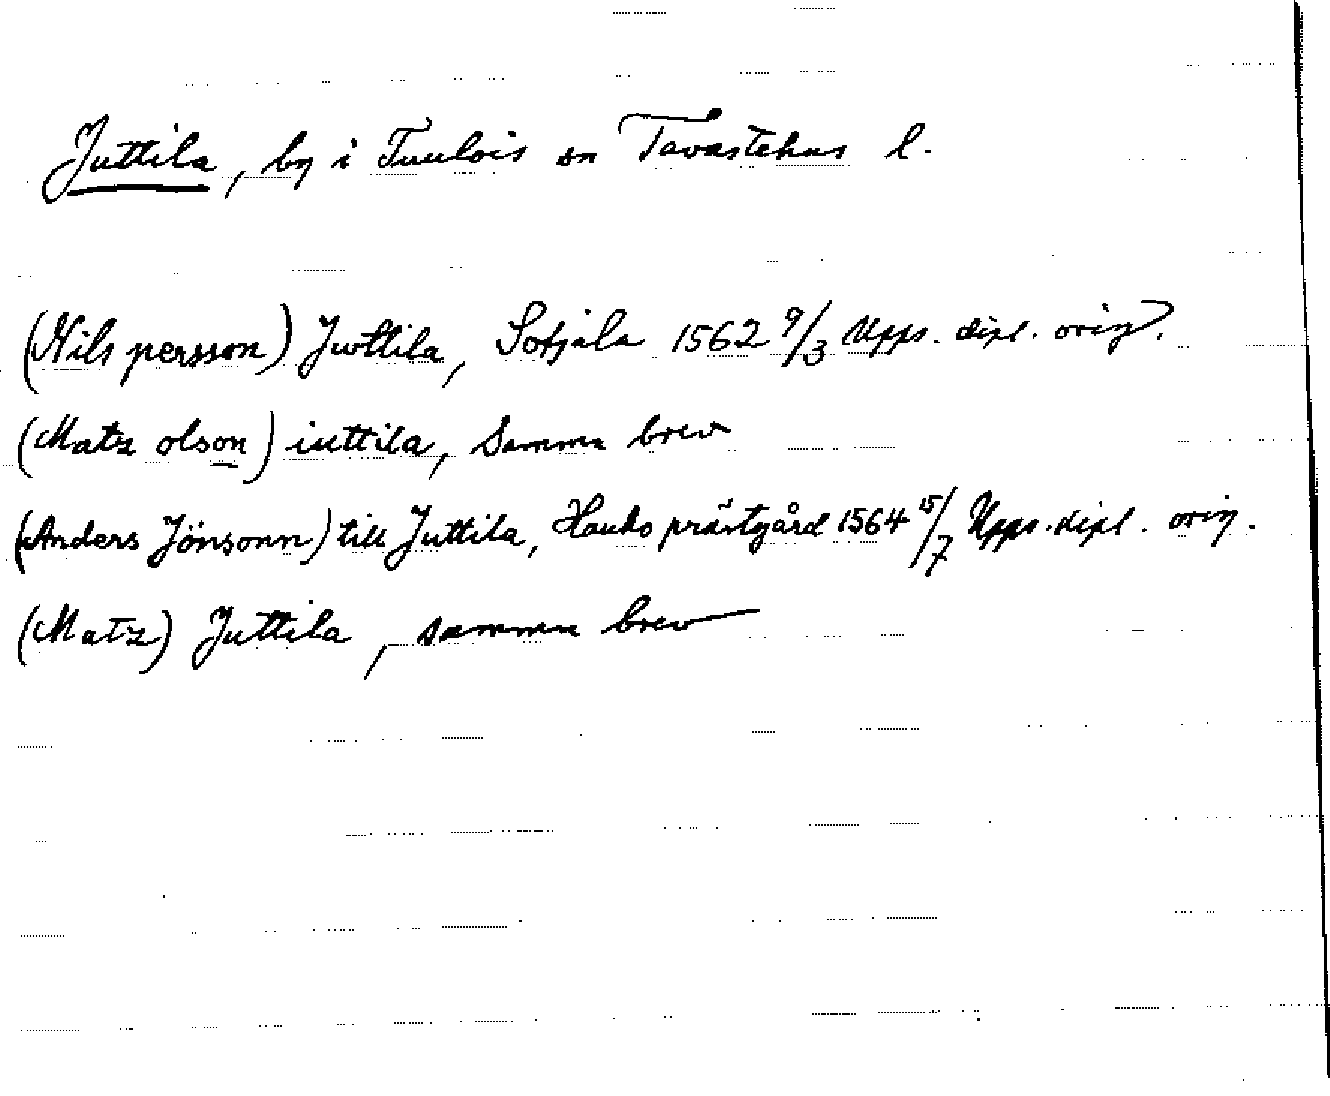 Juttila, by i Tuulois sn Tavastehus l.
(Nils persson) Jwttila, Sotjala 1562 9/3 Upps. dipl. orig.
(Matz olson) iuttila, Samma brev
(Anders Jönsonn) till Juttila, Hauho prästgård 1564 15/7 Upps. dipl. orig.
(Matz) Juttila, samma brev